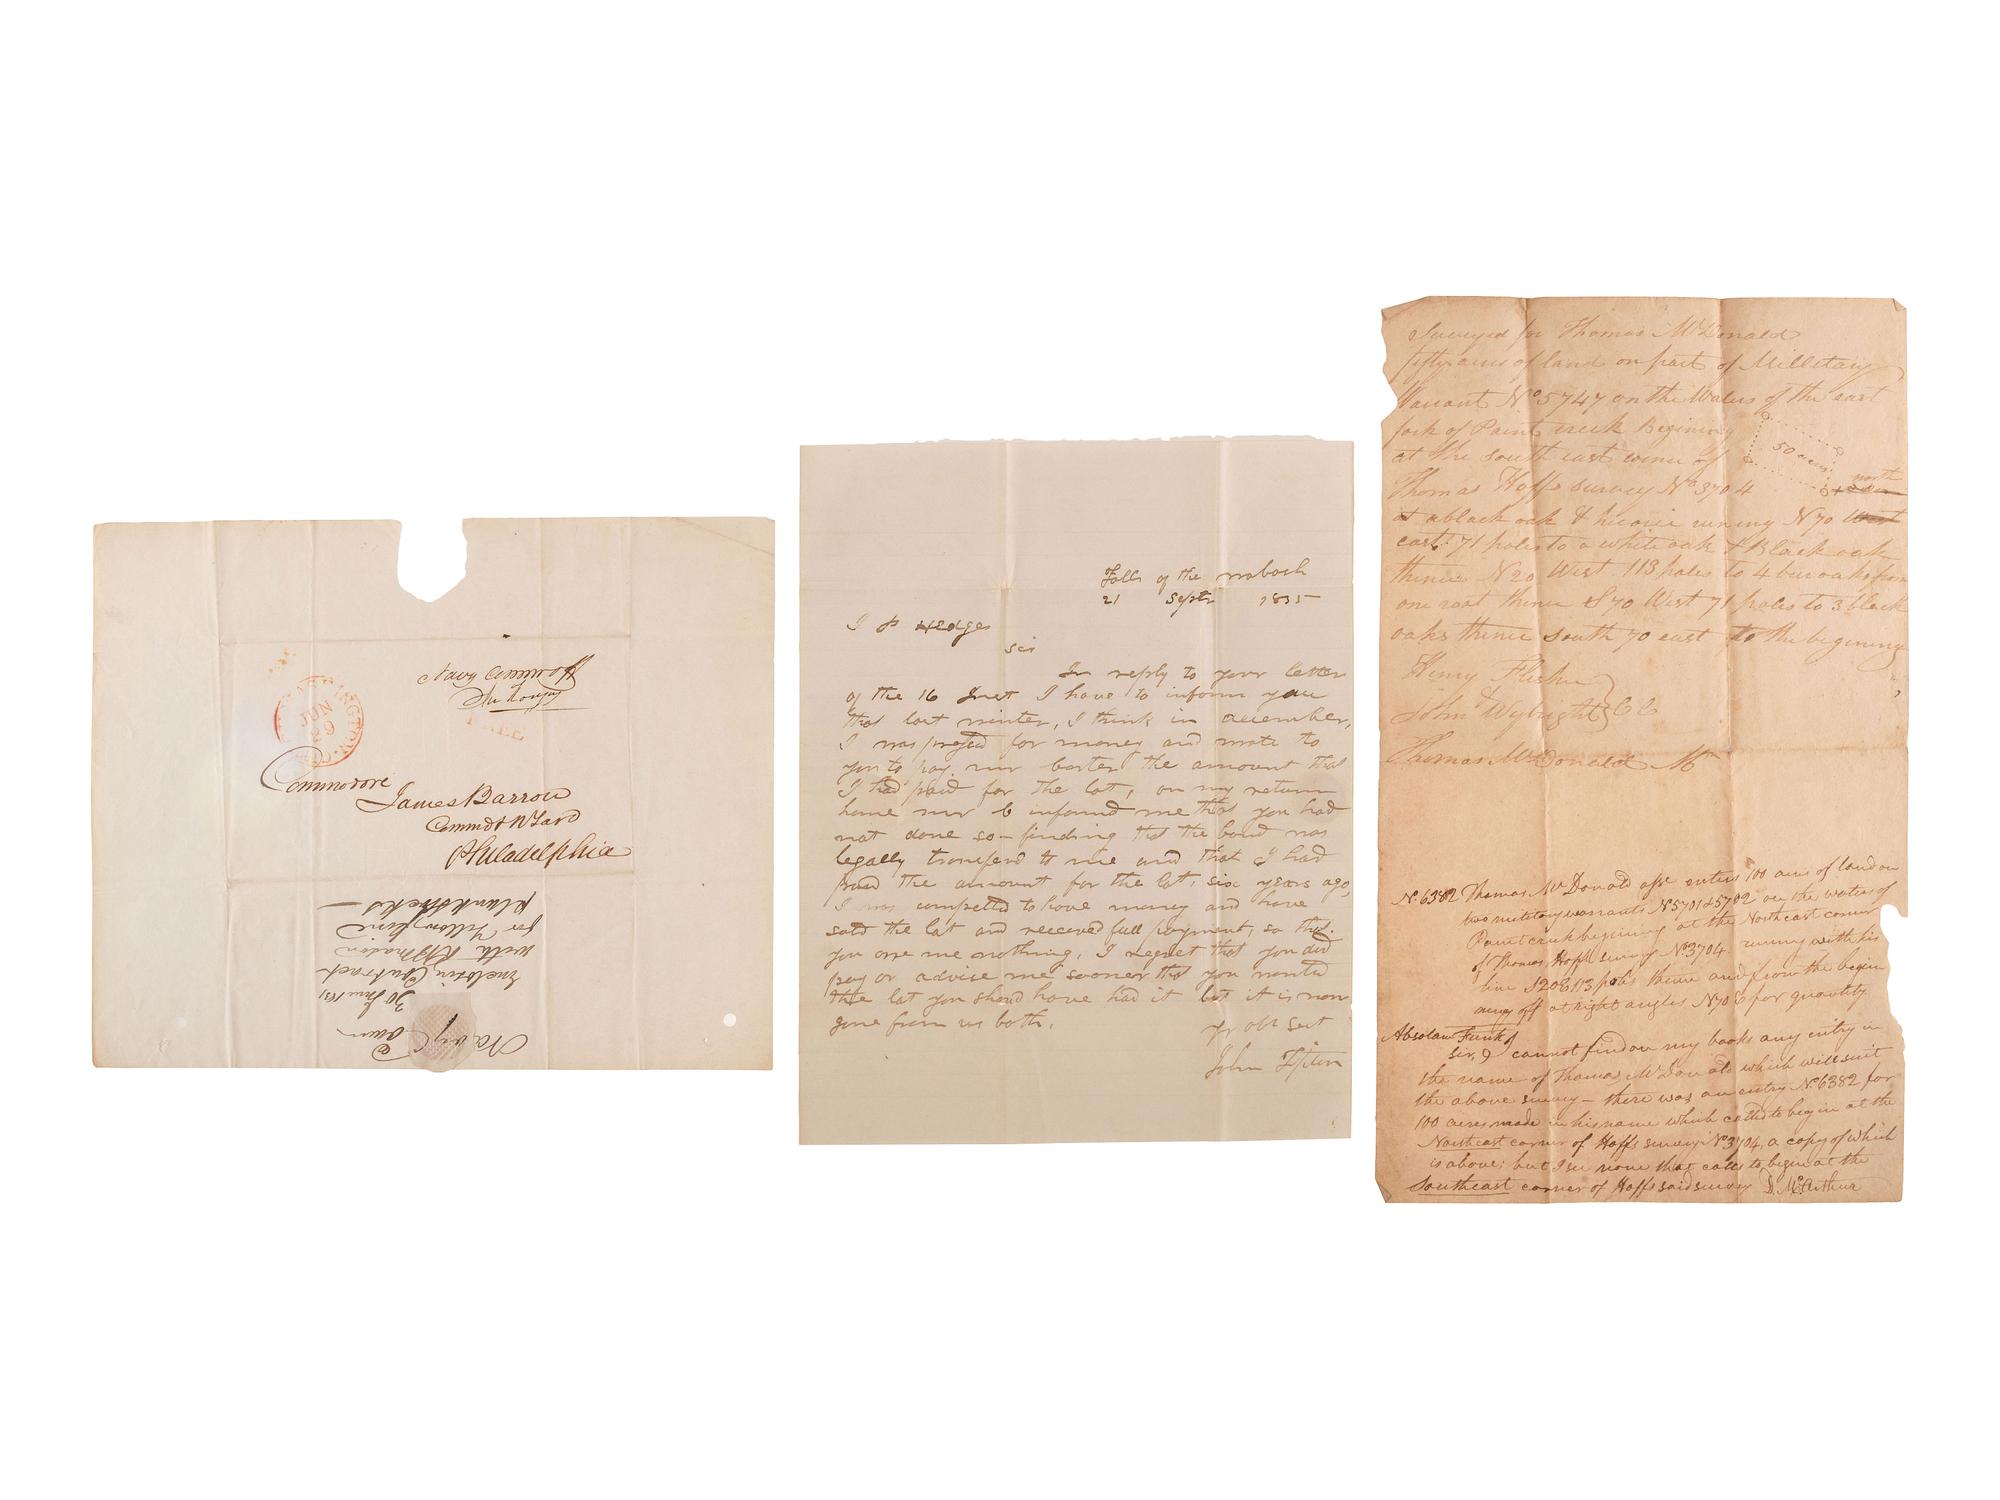 Navy Commrs
WASHINGTON
JUN
29
FREE
Commodore
James Barron
Commdt N Yard
Philadelphia
Navy Comm
30 June 1831
Enclosing Contract
with
for Yellow pine
plank stocks
Falls of the wabash
21 Septr 1835
I P Hedges
sir
In reply to your letter
of the 16 Inst I have to inform you
that last winter, I think in december,
I was presed for money and wrote to
you to pay mr the amount that
I had paid for the lot, on my return
home mr B informed me that you had
not done so – finding that the bond was
legally transferd to me and that I had
paid the amount for the lot, six years ago,
I was compelld to have money and have
sold the lot and received full payment, so that
you owe me nothing, I regret that you did
pay or advise me sooner that you wanted
the lot you should have had it but it is now
gone from us both,
yr obt Sert
John Tipton
Surveyed for Thomas McDonald
fifty acres of land on part of Millitary
Warrant No 5747 on the Waters of the east
fork of Paint creek Begining
at the South east corner of
50 acres
north
Thomas Hoffs survey No 3704
at a black oak & hicorie runing N 70 West
east 71 poles to a white oak & Black oak
thence N 20 West 113 poles to 4 bur oaks from
one root thence S 70 West 71 poles to 3 black
oaks thence South 70 east to the begining
Henry
John Wybright } CC
Thomas McDonald Mr
No. 6382 Thomas McDonald asse enters 100 acres of land on
two military warrants No 5701 & 5702 on the waters of
Paint creek begining at the Northeast corner
of Thomas Hoffs survey No 3704 runing with his
line S 20 E 113 poles thence and from the begin
ning off at right angles N 70 E for quantity
Absolam Funk
Sir, I cannot find on my books any entry in
the name of Thomas McDonald which will suit
the above survey – there was an entry No 6382 for
100 acres made in his name which called to begin at the
Northeast corner of Hoffs survey No 3704, a copy of which
is above; but I see none that calls to begin at the
Southeast corner of Hoffs said survey D. McArthur